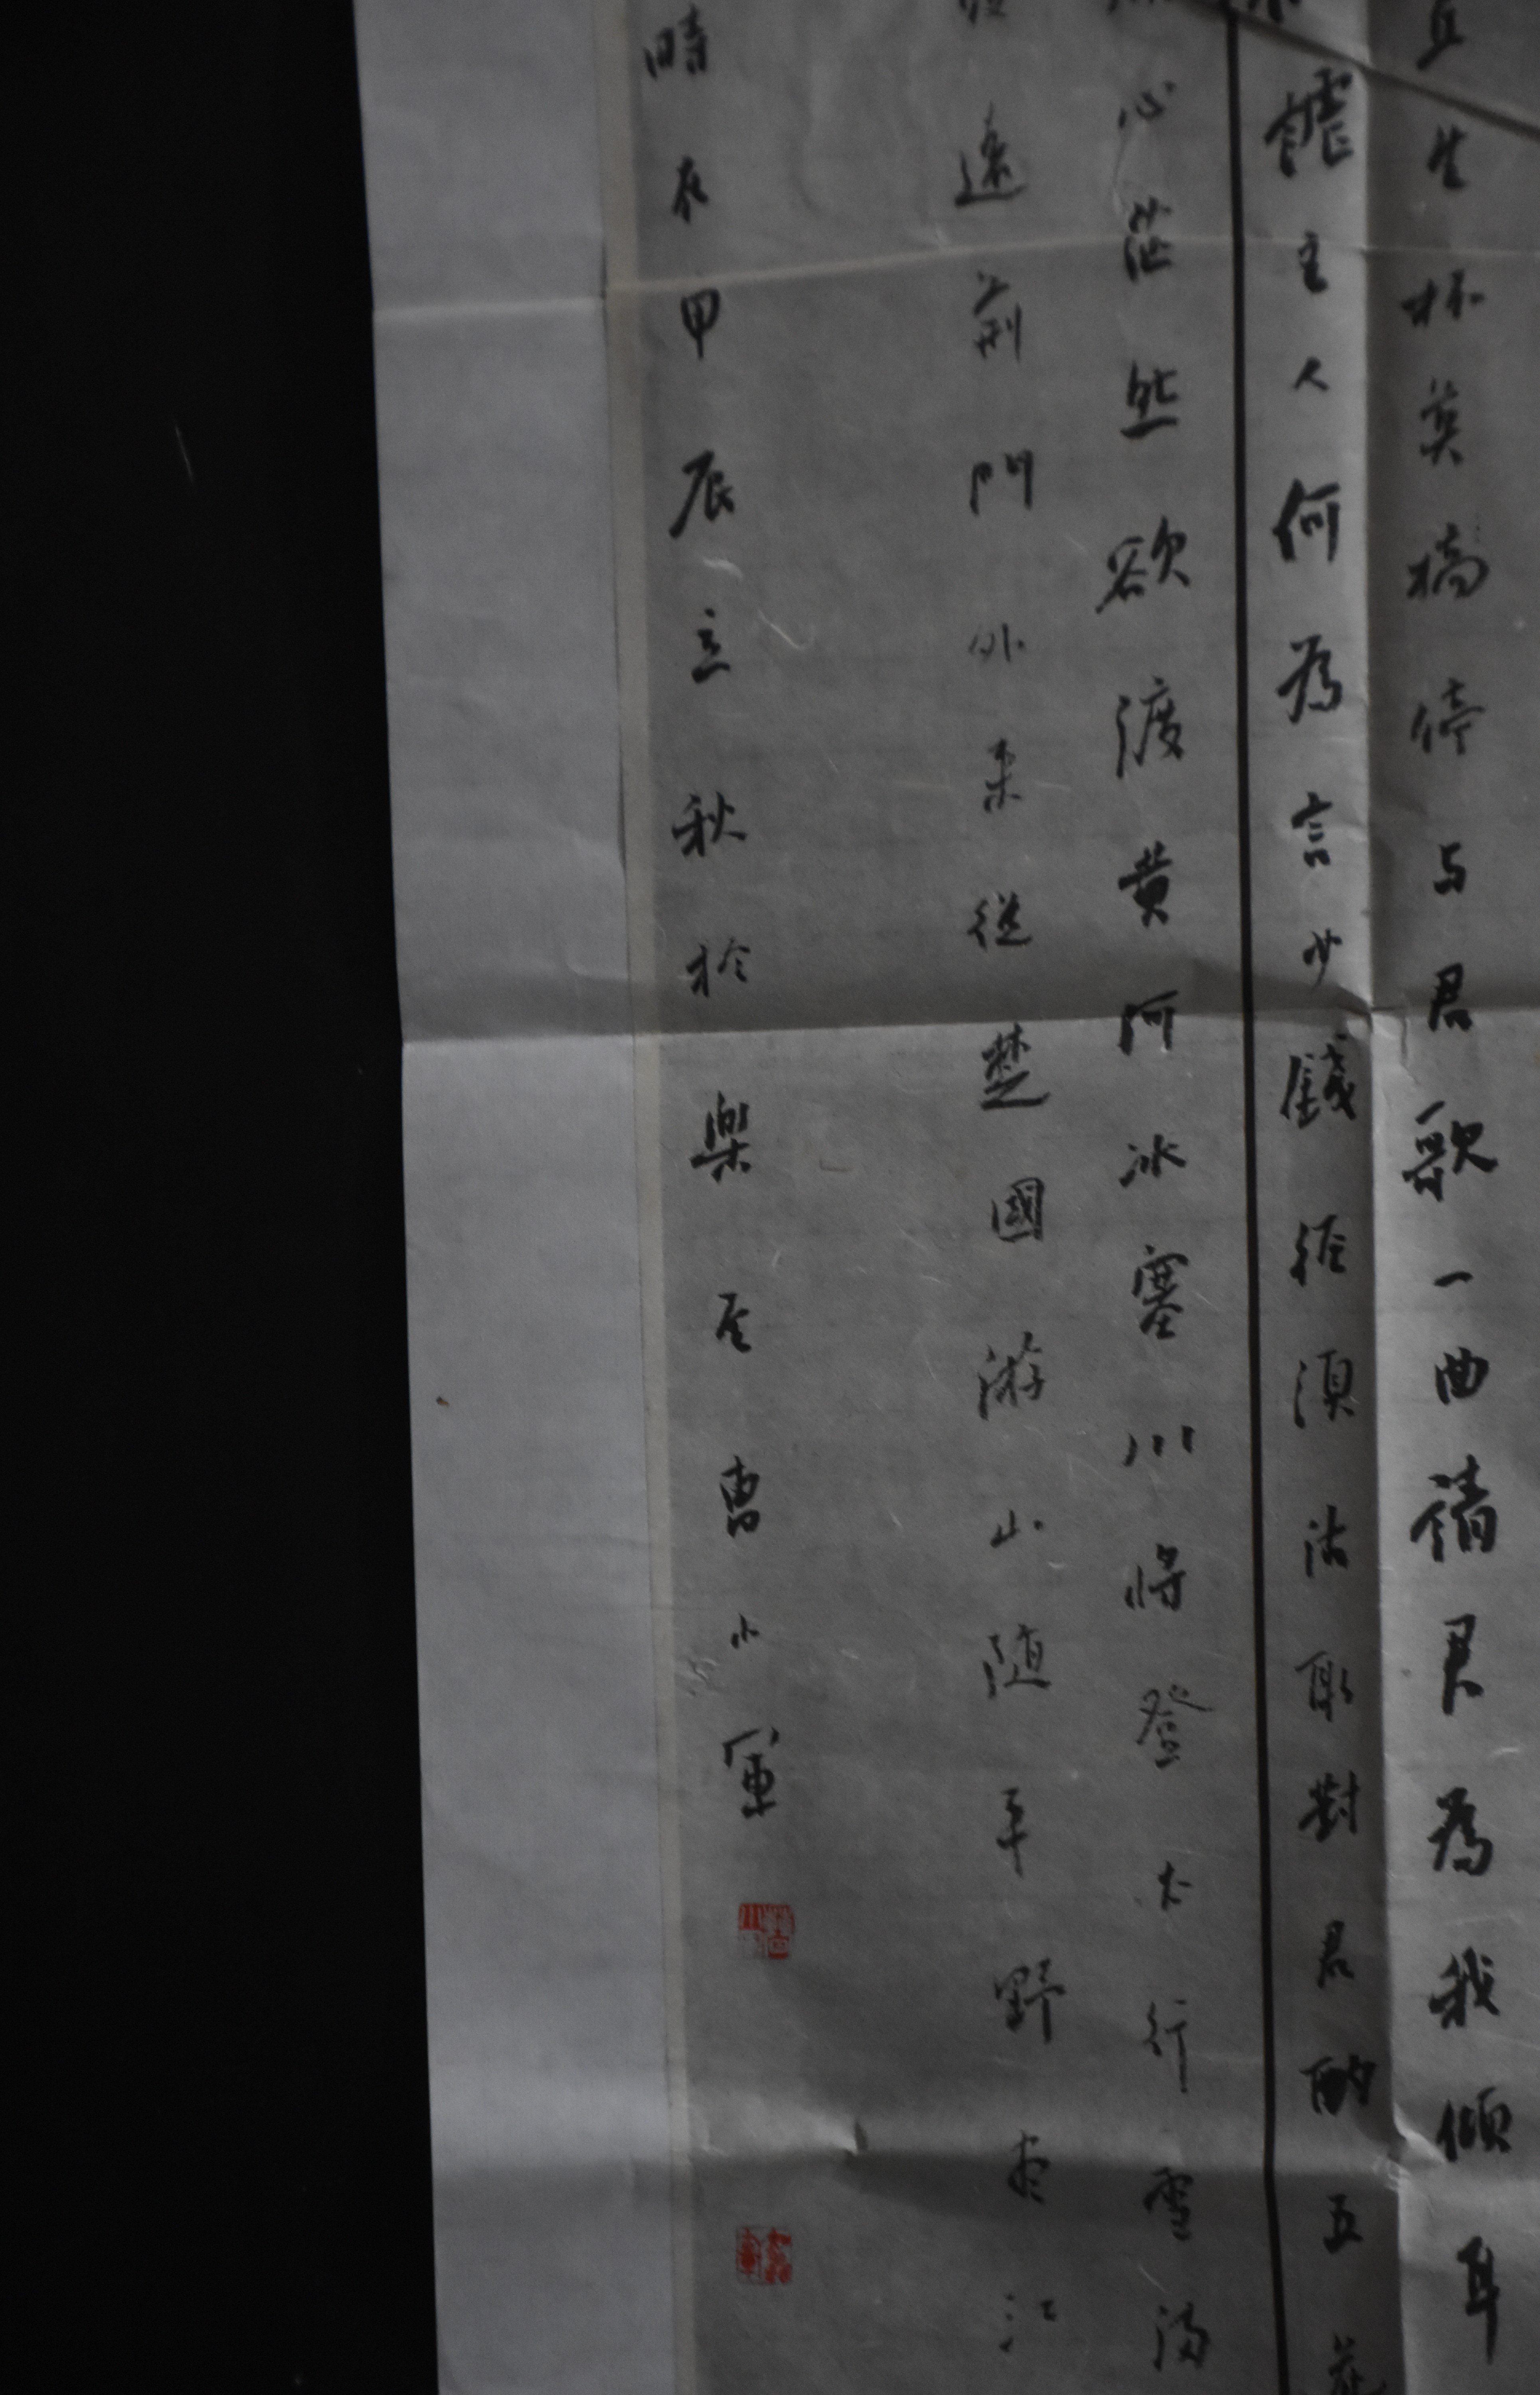 丘生杯莫停与君歌一曲請君為我傾耳
謔主人何為言少錢徑須沽取對君酌五花
心茫然欲渡黄河冰塞川將登太行雪满
遠荆門外来從楚國游山随平野尽江
時在甲辰立秋於樂至曹小軍